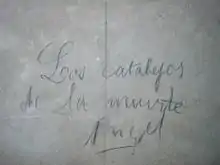 Los catalejos
de la muerte
Angel